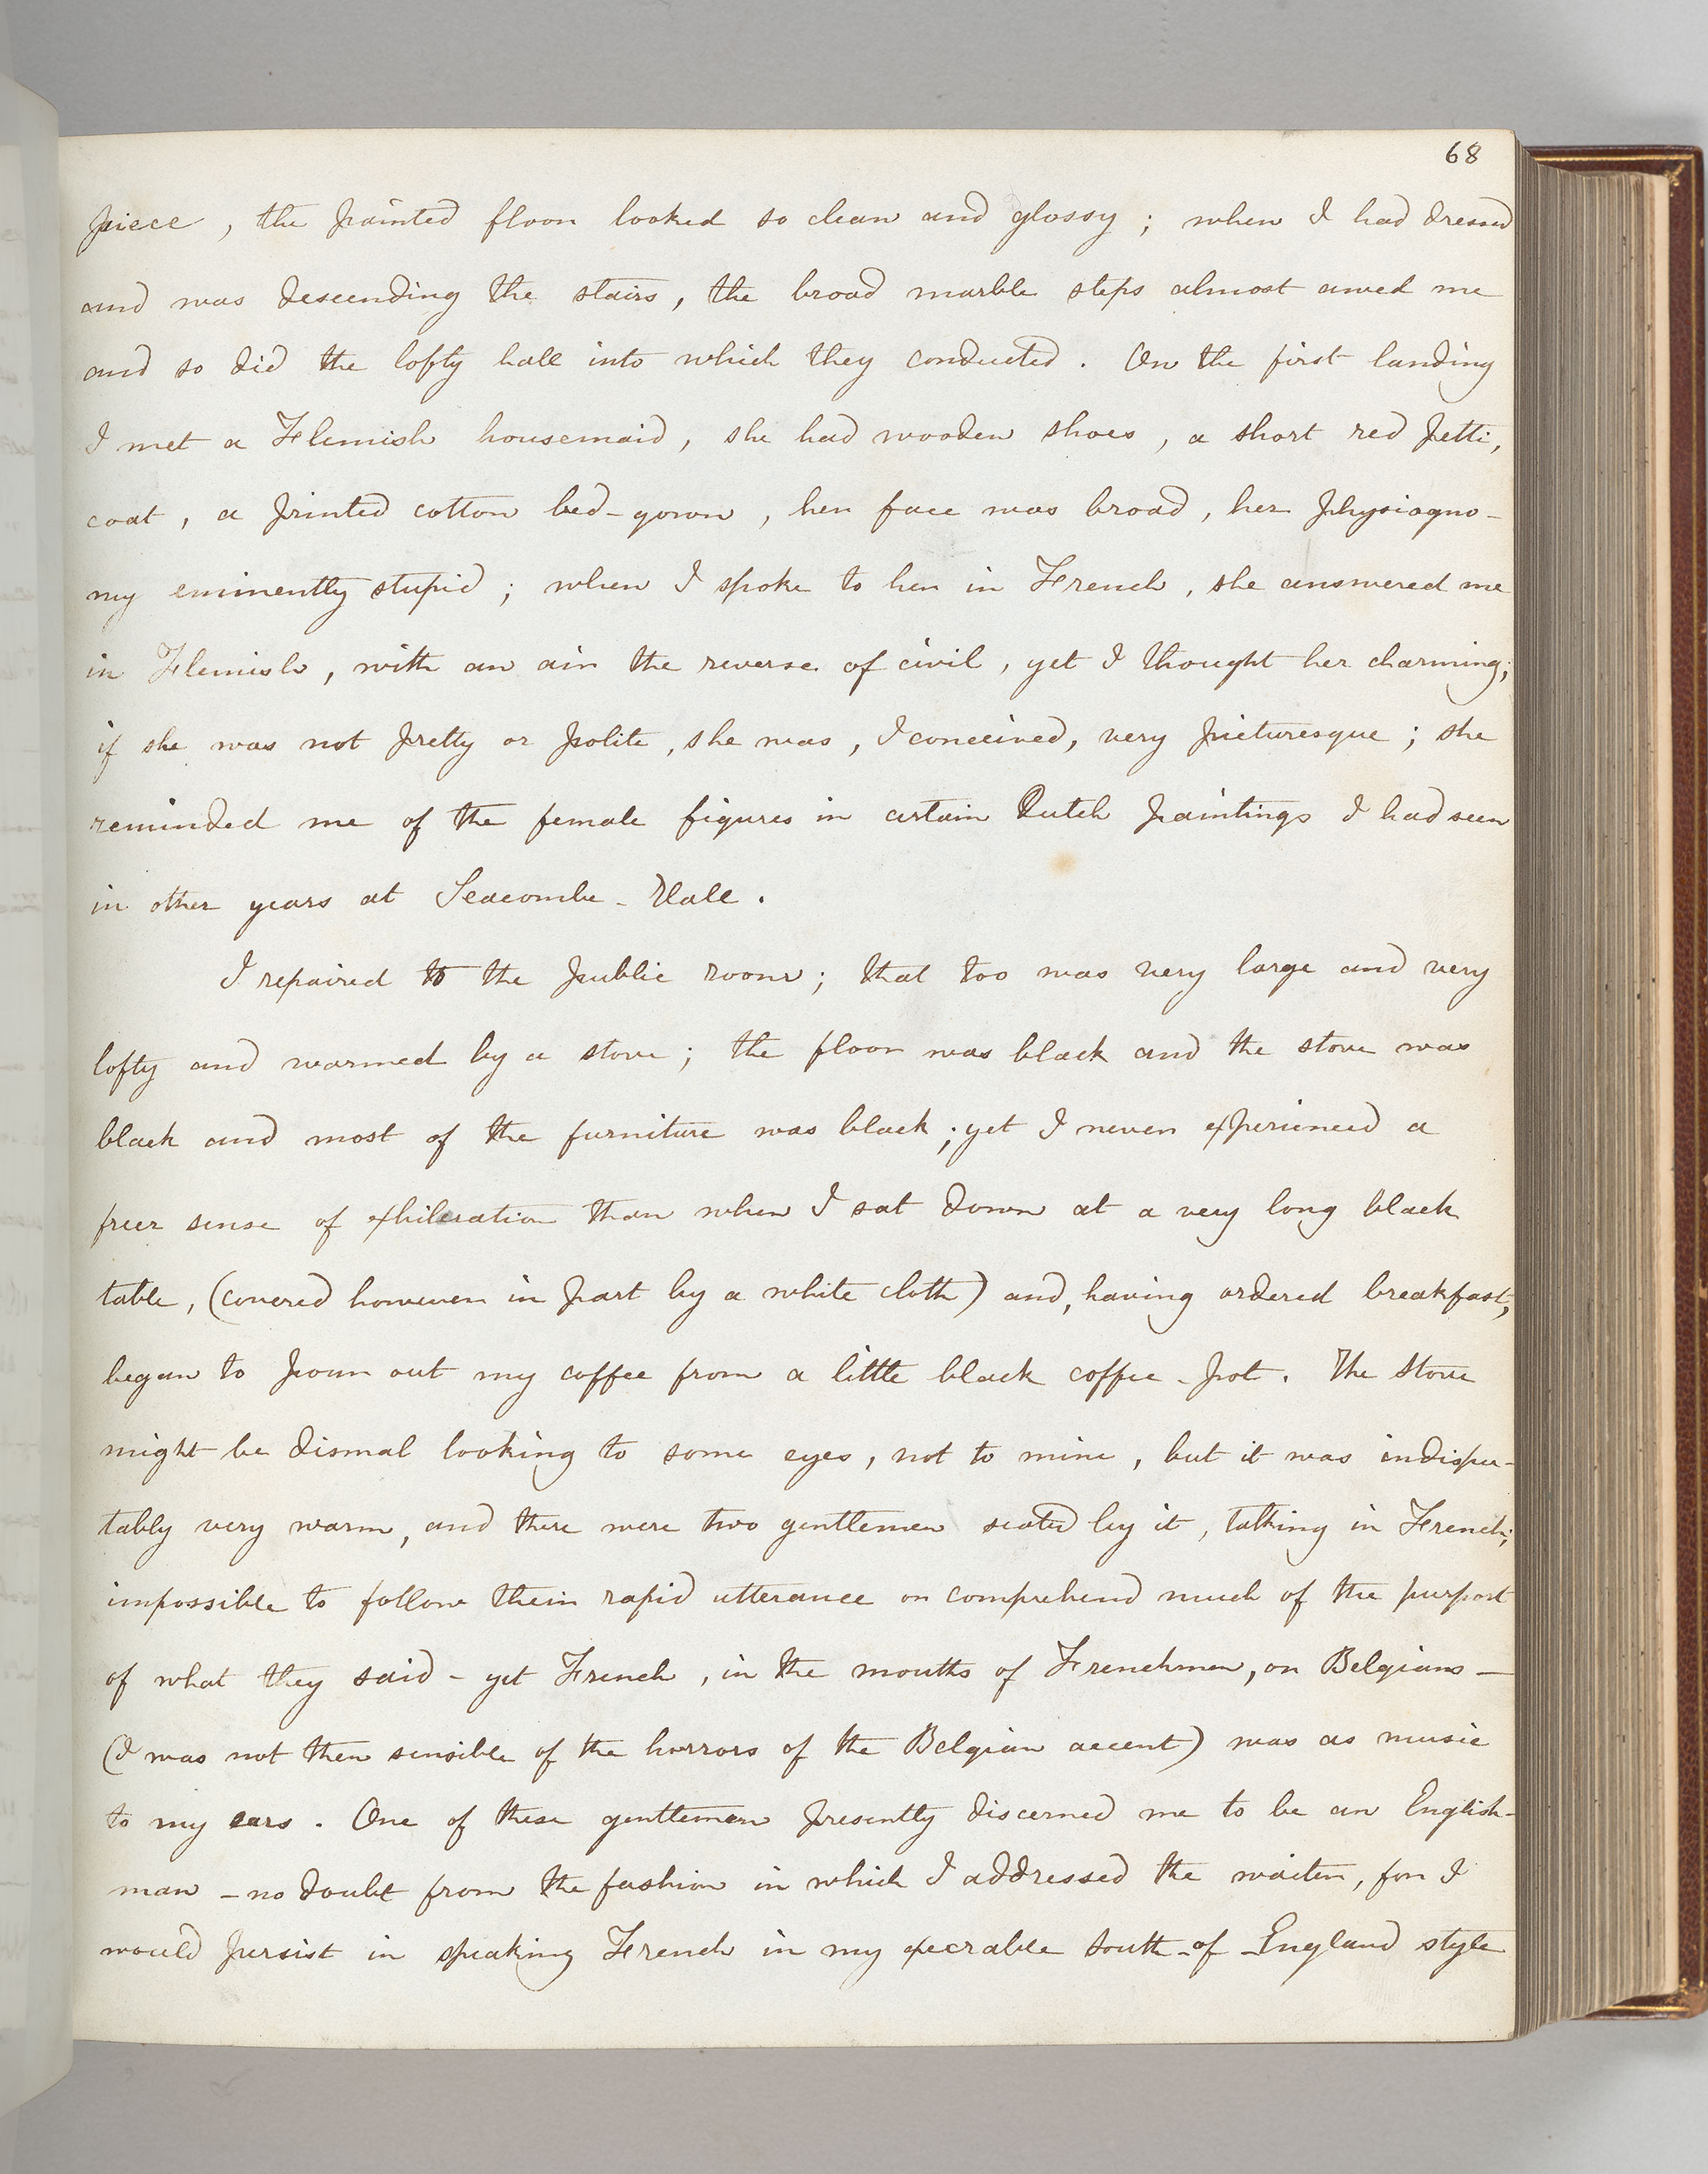 68
piece, the painted floor looked so clean and glossy; when I had dressed
and was descending the stairs, the broad marble steps almost awed me
and so did the lofty hall into which they conducted. On the first landing
I met a Flemish housemaid, she had wooden shoes, a short red petti,
coat, a printed cotton bed-gown, her face was broad, her physiogno-
my eminently stupid; when I spoke to her in French, she answered me
in Flemish, with an air the reverse of civil, yet I thought her charming;
if she was not pretty or polite, she was, I conceived, very picturesque; she
reminded me of the female figures in certain Dutch paintings I had seen
in other years at Seacombe-Hall.
I repaired to the public room; that too was very large and very
lofty and warmed by a stove; the floor was black and the stove was
black and most of the furniture was black; yet I never experienced a
freer sense of exhileration than when I sat down at a very long black
table, (covered however in part by a white cloth) and, having ordered breakfast,
began to pour out my coffee from a little black coffee-pot. The stove
might be dismal looking to some eyes, not to mine, but it was indispu-
tably very warm, and there were two gentlemen seated by it, talking in French;
impossible to follow their rapid utterance or comprehend much of the purport
of what they said - yet French, in the mouths of Frenchmen, or Belgians —
(I was not then sensible of the horrors of the Belgian accent) was as music
to my ears. One of these gentlemen presently discerned me to be an English-
man - no doubt from the fashion in which I addressed the waiter, for I
would persist in speaking French in my execrable South-of-England style